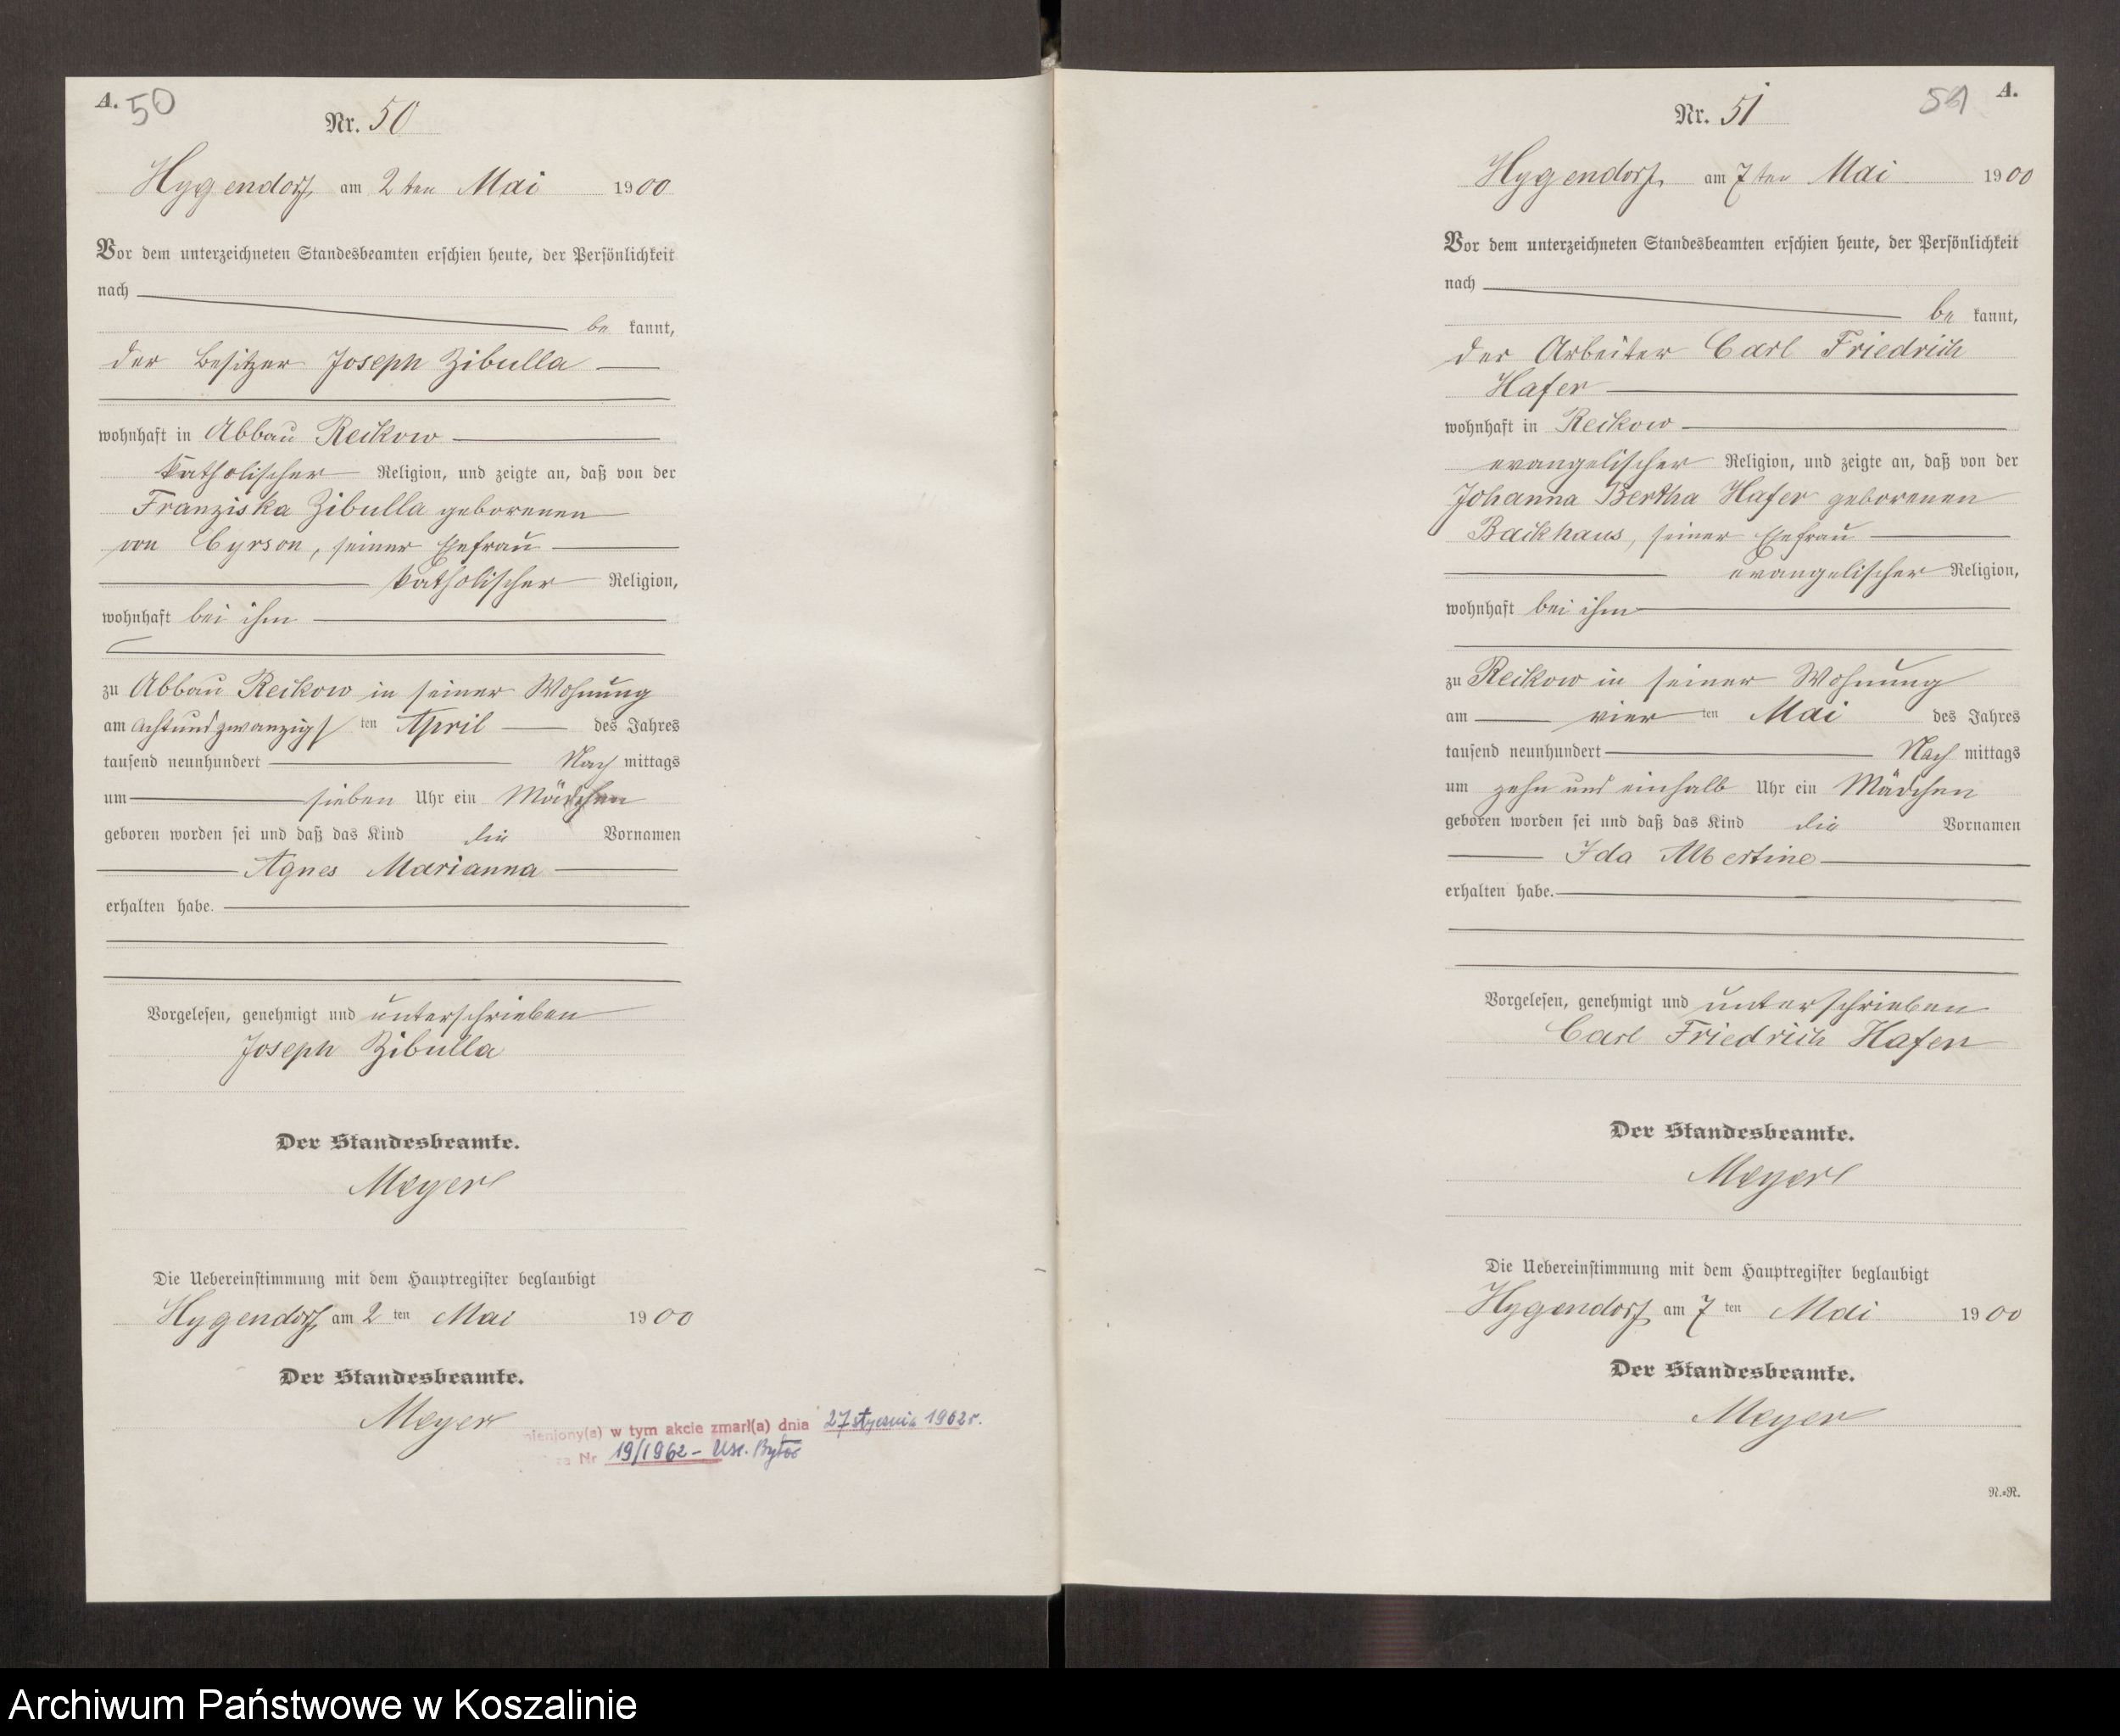 A. 50
Nr. 50
Hygendorf, am 2 ten Mai 1900
Vor dem unterzeichneten Standesbeamten erschien heute, der Persönlichkeit
nach
be kannt,
der Besitzer Joseph Zibulla
wohnhaft in Abbau Reckow
katholischer Religion, und zeigte an, daß von der
Franziska Zibulla geborenen
von Cyrson, seiner Ehefrau
katholischer Religion,
wohnhaft bei ihm
zu Abbau Reckow in seiner Wohnung
am achtundzwanzigsten April des Jahres
tausend neunhundert Nach mittags
um sieben Uhr ein Mädchen
geboren worden sei und daß das Kind die Vornamen
Agnes Marianna
erhalten habe.
Vorgelesen, genehmigt und unterschrieben
Joseph Zibulla
Der Standesbeamte.
Meyer
Die Uebereinstimmung mit dem Hauptregister beglaubigt
Hygendorf, am 2 ten Mai 1900
Der Standesbeamte.
Meyer
w tym akcie zmarł(a) dnia 27 stycznia 1962 r.
Nr 19/1962 - Usc. Bytów
51 A.
Nr. 51
Hygendorf, am 7 ten Mai 1900
Vor dem unterzeichneten Standesbeamten erschien heute, der Persönlichkeit
nach
be kannt,
der Arbeiter Carl Friedrich
Hafer
wohnhaft in Reckow
evangelischer Religion, und zeigte an, daß von der
Johanna Bertha Hafer geborenen
Backhaus, seiner Ehefrau
evangelischer Religion,
wohnhaft bei ihm
zu Reckow in seiner Wohnung
am vier ten Mai des Jahres
tausend neunhundert Nach mittags
um zehn und einhalb Uhr ein Mädchen
geboren worden sei und daß das Kind die Vornamen
Ida Albertine
erhalten habe.
Vorgelesen, genehmigt und unterschrieben
Carl Friedrich Hafer
Der Standesbeamte.
Meyer
Die Uebereinstimmung mit dem Hauptregister beglaubigt
Hygendorf, am 7 ten Mai 1900
Der Standesbeamte.
Meyer
N.=R.
Archiwum Państwowe w Koszalinie